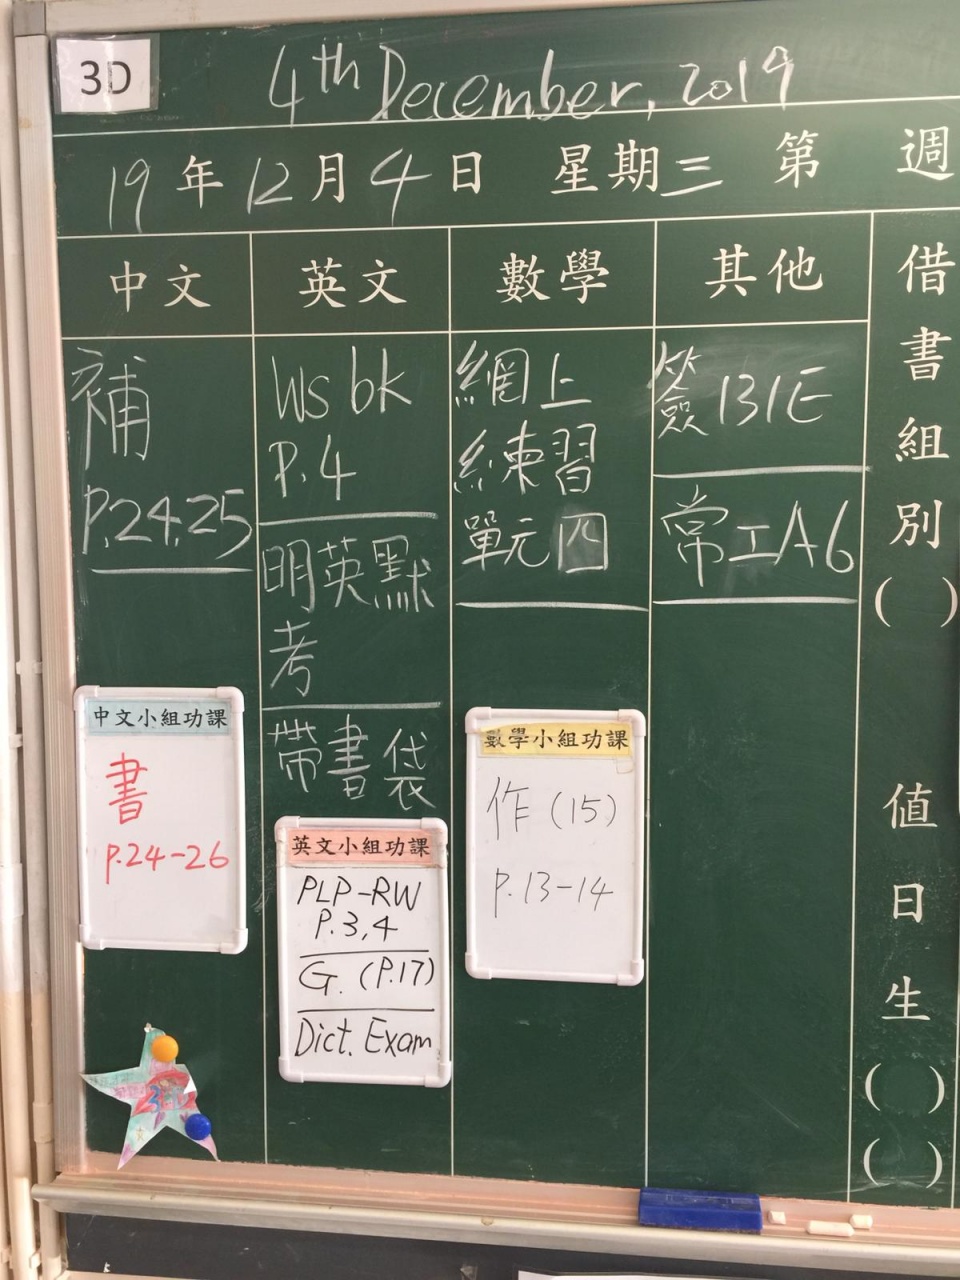 3D
4th December, 2019
19年12月4日 星期三 第 週
中文
補
P.24,25
英文
Ws bk
P.4
明英默
考
帶書袋
數學
網上
練習
單元四
其他
簽131E
常工A6
借書組別
( )
值日生
( )
( )
中文小組功課
書
P.24-26
英文小組功課
PLP-RW
P.3,4
G. (P.17)
Dict. Exam
數學小組功課
作 (15)
P.13-14